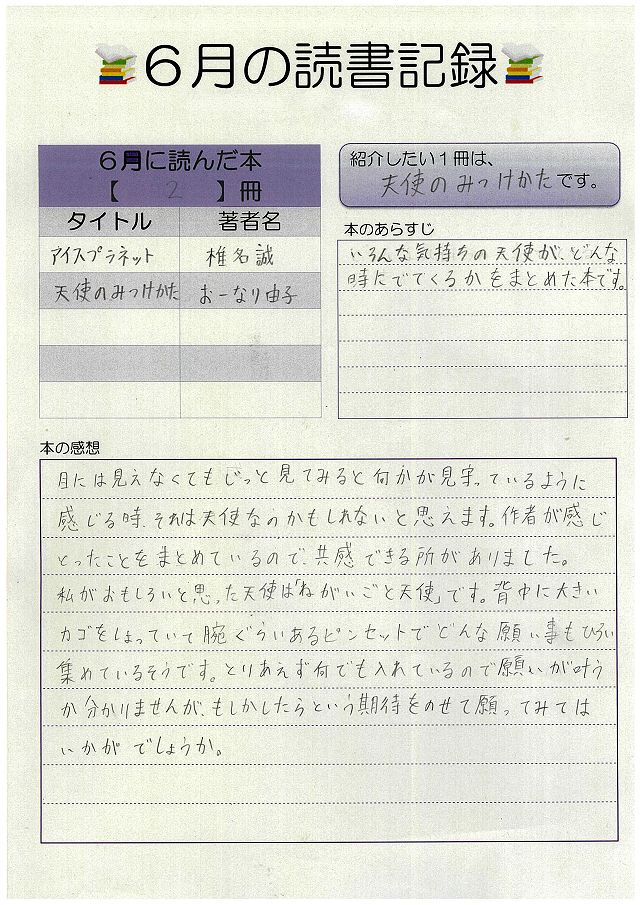 6月の読書記録
6月に読んだ本
【 2 】冊
タイトル 著者名
アイスプラネット 椎名誠
天使のみつけかた おーなり由子
紹介したい1冊は、
天使のみつけかたです。
本のあらすじ
いろんな気持ちの天使が、どんな
時にでてくるかをまとめた本です。
本の感想
目には見えなくてもじっと見てみると何かが見守っているように
感じる時、それは天使なのかもしれないと思えます。作者が感じ
とったことをまとめているので、共感できる所がありました。
私がおもしろいと思った天使は「ねがいごと天使」です。背中に大きい
カゴをしょっていて腕ぐらいあるピンセットでどんな願い事もひろい
集めているそうです。とりあえず何でも入れているので願いが叶う
か分かりませんが、もしかしたらという期待をのせて願ってみては
いかがでしょうか。